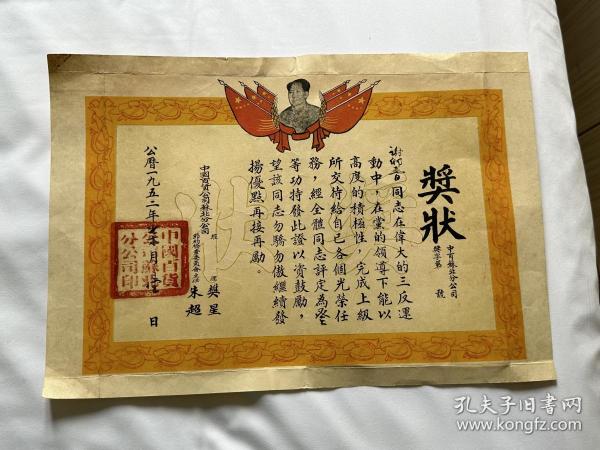 獎狀
中百蘇北分公司
獎字第　號
同志在偉大的三反運
動中，在黨的領導下能以
高度的積極性，完成上級
所交待給自己各個光榮任
務，經全體同志評定為
等功特發此證以資鼓勵，
望該同志勿驕勿傲繼續發
揚優點再接再勵。
中國百貨公司蘇北分公司
經理 樊星
朱超
公曆一九五二年 月 日
中國百貨
公司蘇北
分公司印
孔夫子旧书网
www.kongfz.com